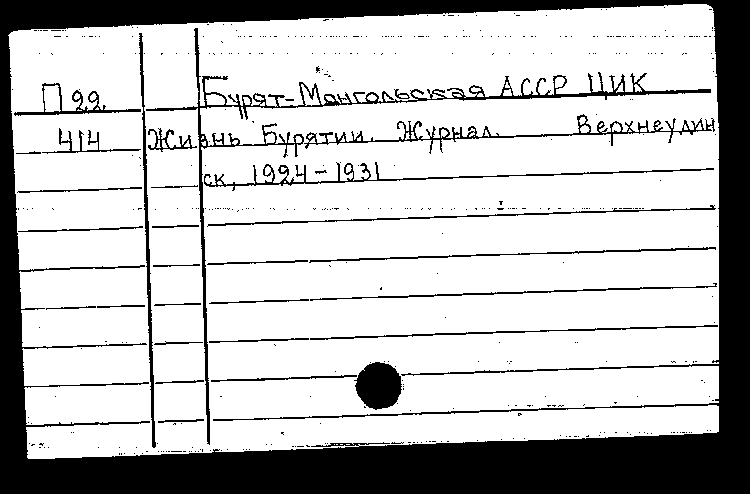 П 22. Бурят-Монгольская АССР ЦИК
414 Жизнь Бурятии. Журнал. Верхнеудин
ск, 1924-1931